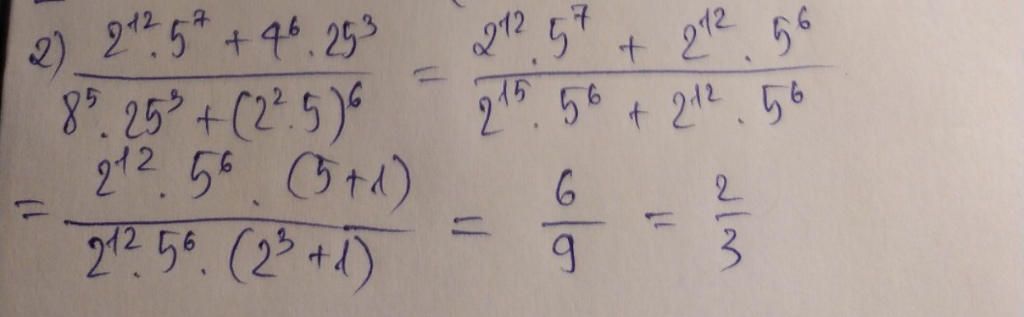 2) (2¹² . 5⁷ + 4⁶ . 25³) / (8⁵ . 25³ + (2² . 5)⁶) = (2¹² . 5⁷ + 2¹² . 5⁶) / (2¹⁵ . 5⁶ + 2¹² . 5⁶)
= (2¹² . 5⁶ . (5+1)) / (2¹² . 5⁶ . (2³ + 1)) = 6/9 = 2/3